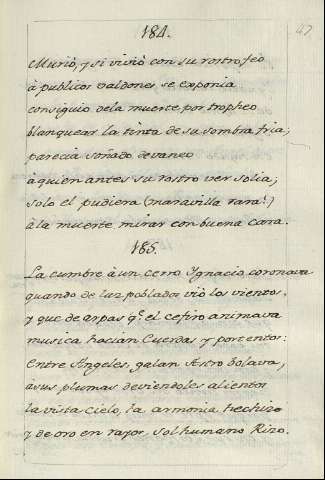 184.
47
Murió, y si vivió con su rostro feo
à publicos valdones se exponia
consiguio dela muerte, por tropheo
blanquear la tinta de su sombra fria;
parecia soñado devaneo
à quien antes su rostro ver solia;
solo el pudiera (maravilla rara!)
à la muerte mirar con buena cara.
185.
La cumbre à un cerro Ygnacio coronava
quando de luz poblados vió los vientos,
y que de arpas q.e el cefiro animava
musica hacian Cuerdas y portentos:
Entre Angeles, galan Astro bolava,
à sus plumas deviendoles alientos
la vista cielo, la armonia hechizo
y de oro en rayos, Sol humano Rizo.